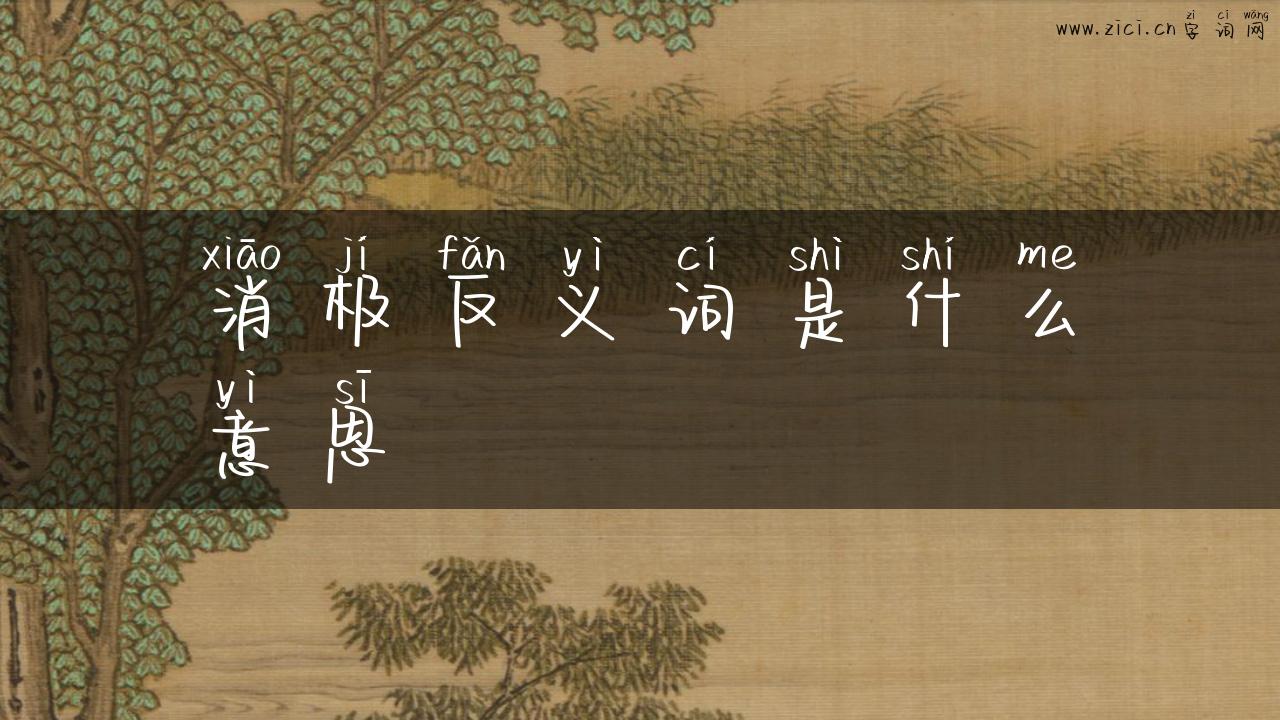 zì cí wǎng
www.zici.cn字词网
xiāo jí fǎn yì cí shì shí me
消极反义词是什么
yì sī
意思